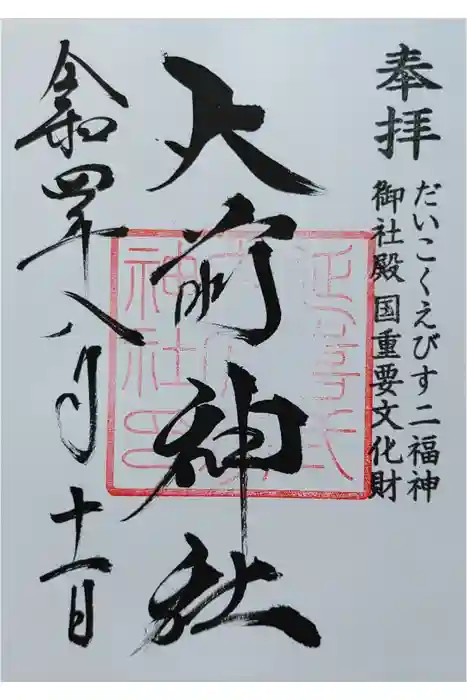 奉拝
だいこくえびす二福神
御社殿国重要文化財
大前神社
延喜式
神社印
令和四年八月十一日